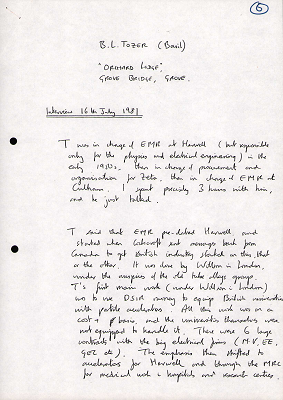 6
B.L. TOZER (Basil)
"ORCHARD LODGE",
GROVE BRIDGE, GROVE.
Interview 16th July 1981
T was in charge of EMR at Harwell (but responsible
only for the physics and electrical engineering) in the
early 1950s, then in charge of procurement and
organisation for Zeta, then in charge of EMR at
Culham. I spent precisely 3 hours with him,
and he just talked.
T said that EMR pre-dated Harwell and
started when Cockcroft sent messages back from
Canada to get British industry started on this, that
or the other. It was done by Willson in London,
under the auspices of the old tube alloys group.
T's first main work (under Willson in London)
was to use DSIR money to equip British universities
with particle accelerators. All this work was on a
cost + basis, and the universities themselves were
not equipped to handle it. There were 6 large
contracts with the big electrical firms (MV, EE,
GEC etc). The emphasis then shifted to
accelerators for Harwell and through the MRC
for medical work in hospitals and research centres.